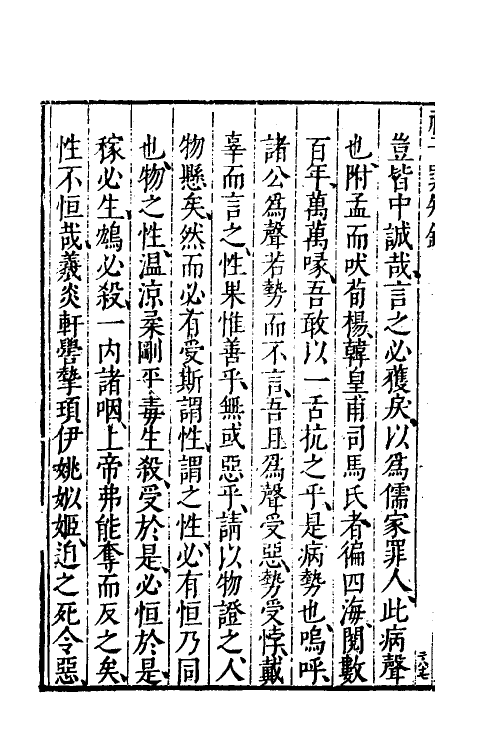 豈皆中誠哉言之必獲戾以為儒家罪人此病聲
也附孟而吠荀楊韓皇甫司馬氏者徧四海閱數
百年萬萬喙吾敢以一舌抗之乎是病勢也嗚呼
諸公為聲若勢而不言吾且為聲受惡勢受悖戴
辜而言之性果惟善乎無或惡乎請以物證之人
物懸矣然而必有受斯謂性謂之性必有恒乃同
也物之性溫涼柔剛平毒生殺受於是必恒於是
稼必生鴆必殺一内諸咽上帝弗能奪而反之矣
性不恒哉羲炎軒嚳摯頊伊姚姒姬迫之死令惡